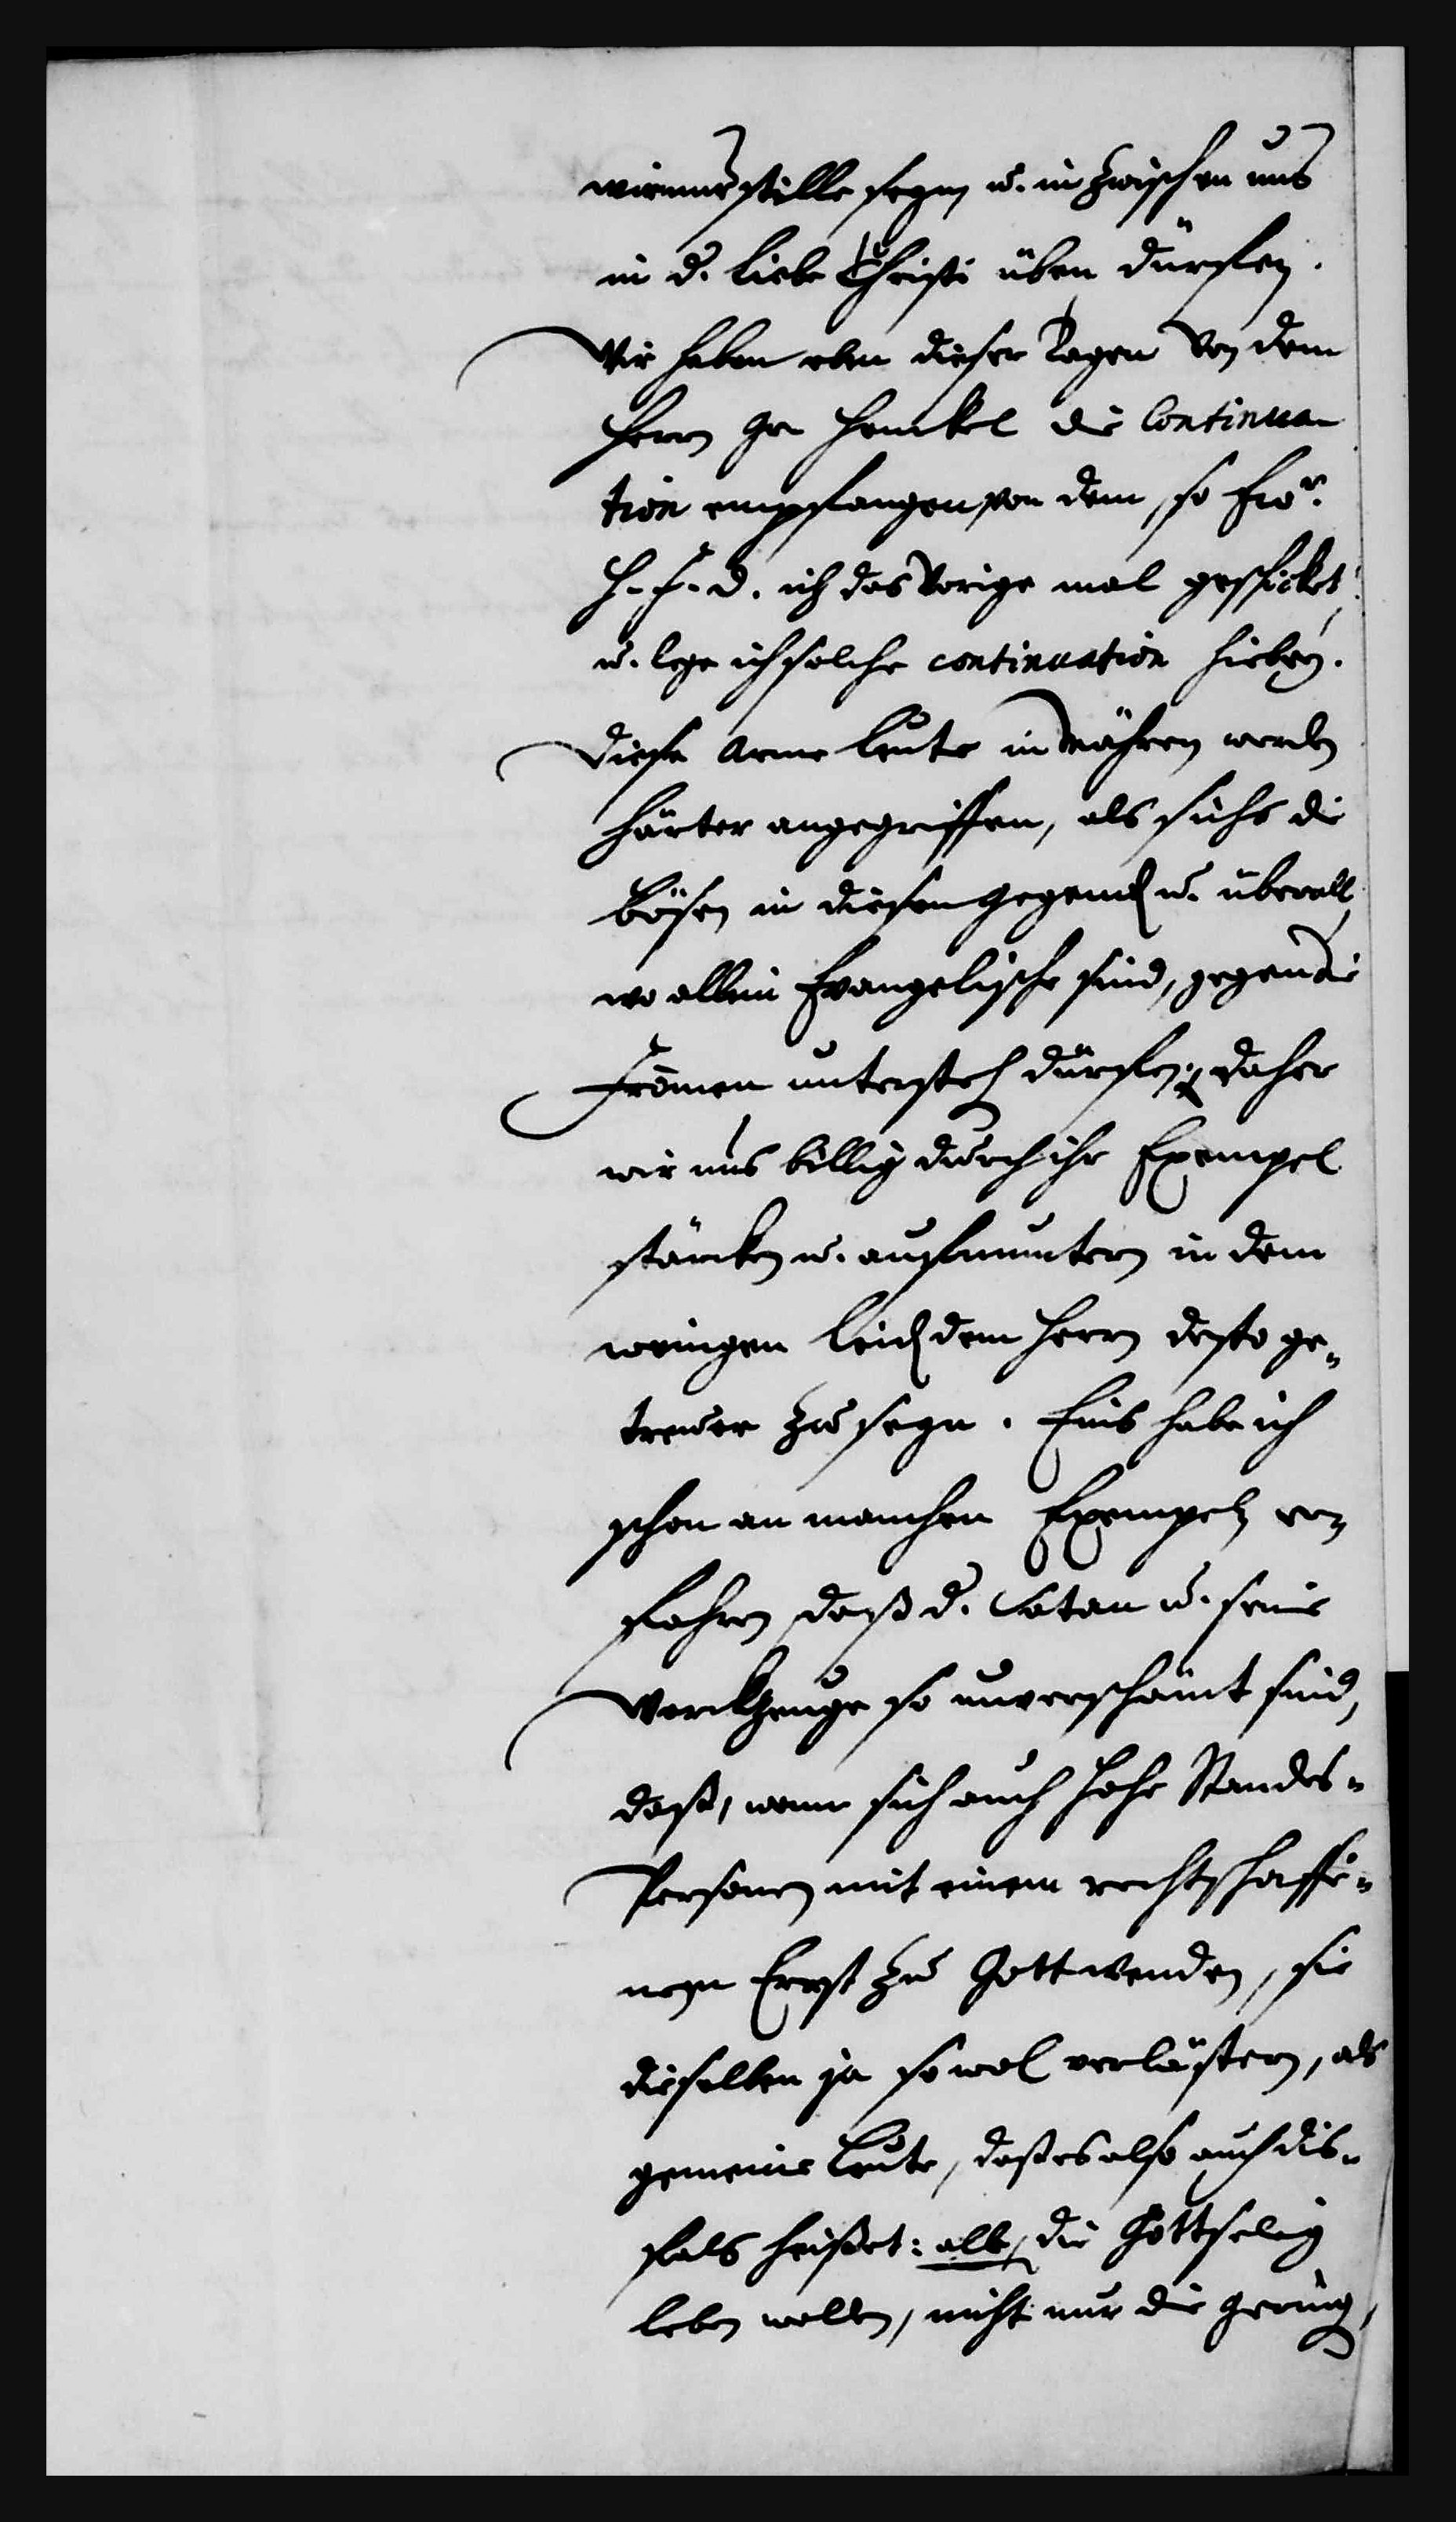 wir nur stille seyn u. inzwischen uns
in d. Liebe Christi üben dürfen.
Wir haben eben dieser Tagen von dem
Herrn Gr Henckel die Continua-
tion empfangen von dem, so Ew.r
H-F-D. ich das Vorige mal geschicket,
u. lege ich solche continuation hiebey.
Diese arme Leute in Mähren werden
härter angegriffen, als sichs die
Bösen in diesen Gegenden u. überall,
wo allein Evangelische sind, gegen die
Fromen unterstehen dürfen; daher
wir uns billig durch ihr Exempel
stärcken u. aufmuntern in dem
wenigen Leiden dem Herrn desto ge-
treuer zu seyn. Eins habe ich
schon an manchen Exempeln er-
fahren, daß d. Satan u. seine
Werckzeuge so unverschämt sind,
daß, wenn sich auch hohe Standes-
Personen mit einem rechtschaffe-
nen Ernst zu Gott wenden, sie
dieselben ja so wol verlästern, als
gemeine Leute, daß es also auch dis-
fals heißet: alle, die Gottselig
leben wollen, nicht nur die gering,